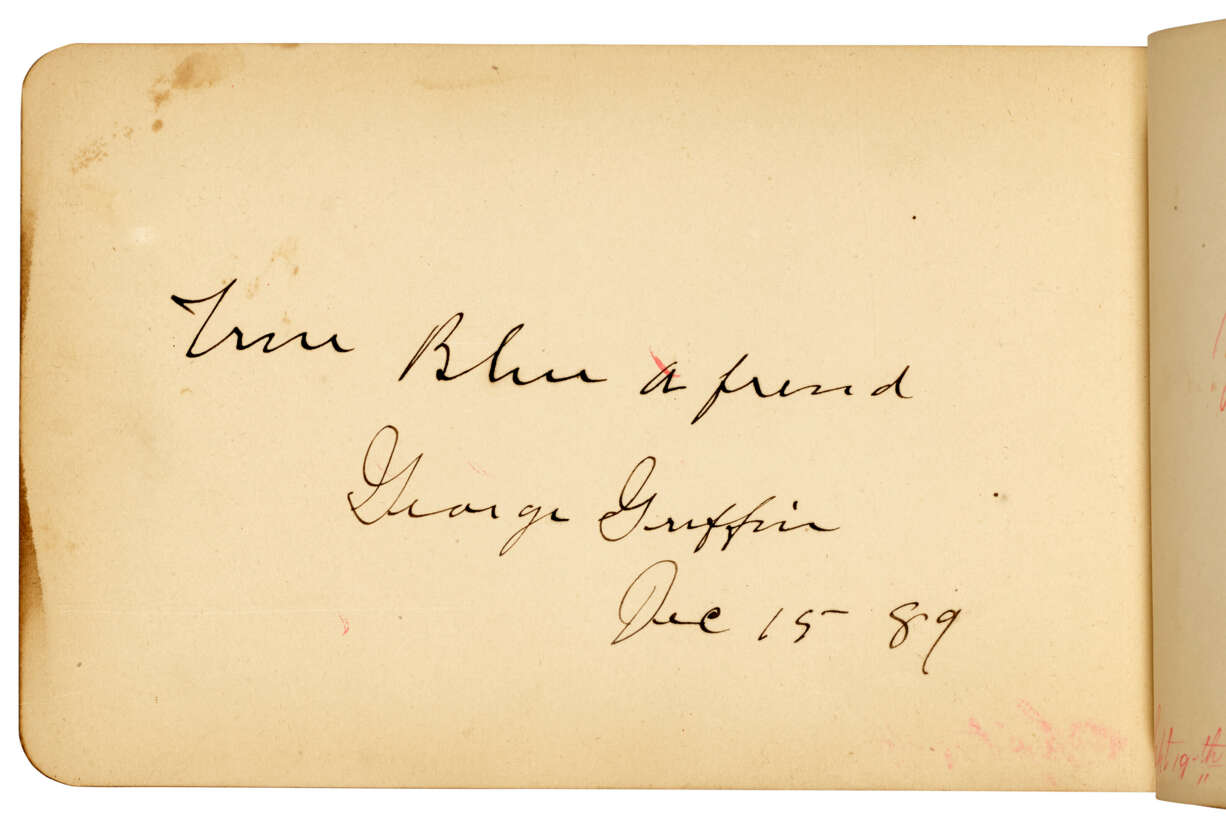 True Blue a friend
George Griffin
Dec 15 89
19th